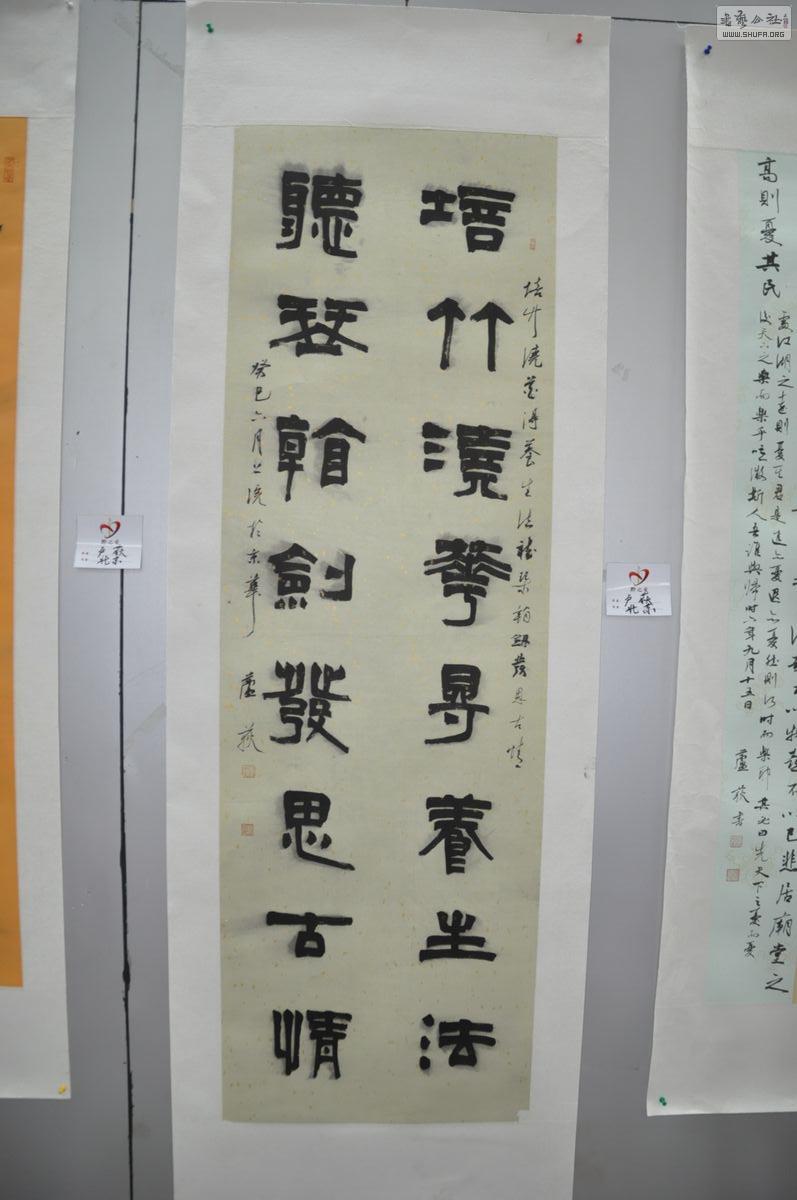 培竹澆華㝵養生法
聽琴劍發思古情
培竹澆花得養生法聽琴劍發思古情
癸巳六月上浣於京華 蘆荻
不以物喜不以己悲居廟堂之
高則憂其民
處江湖之遠則憂其君是進亦憂退亦憂然則何時而樂耶其必曰先天下之憂而憂
後天下之樂而樂乎噫微斯人吾誰與歸時六年九月十五日
蘆荻書
WWW.SHUFA.ORG